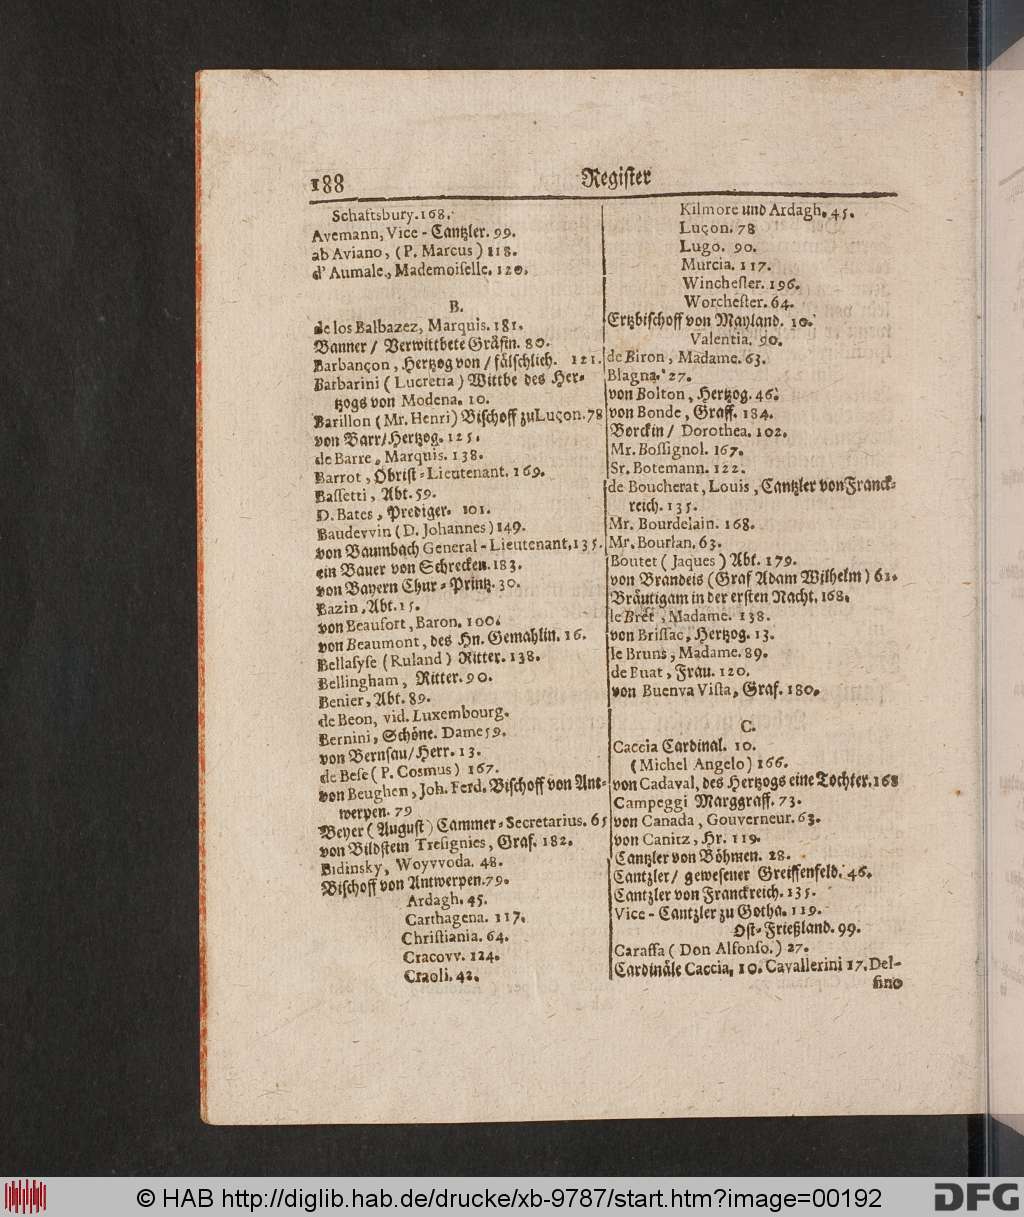 188 Register
Schaftsbury. 168.
Avemann, Vice-Cantzler. 99.
ab Aviano, (P. Marcus) 118.
d' Aumale, Mademoiselle. 120.
B.
de los Balbazez, Marquis. 181.
Banner / Verwittbete Gräfin. 80.
Barbançon, Hertzog von / fälschlich. 121.
Barbarini (Lucretia) Wittbe des Her-
tzogs von Modena. 10.
Barillon (Mr. Henri) Bischoff zu Luçon. 78
von Barr / Hertzog. 125.
de Barre, Marquis. 138.
Barrot, Obrist-Lieutenant. 169.
Bassetti, Abt. 59.
D. Bates, Prediger. 101.
Baudevvin (D. Johannes) 149.
von Baumbach General-Lieutenant, 135.
ein Bauer von Schrecken. 183.
von Bayern Chur-Printz. 30.
Bazin, Abt. 15.
von Beaufort, Baron. 100.
von Beaumont, des Hn. Gemahlin. 16.
Bellasyse (Ruland) Ritter. 138.
Bellingham, Ritter. 90.
Benier, Abt. 89.
de Beon, vid. Luxembourg.
Bernini, Schöne. Dame 59.
von Bernsau / Herr. 13.
de Bese (P. Cosmus) 167.
von Beughen, Joh. Ferd. Bischoff von Ant-
werpen. 79
Beyer (August) Cammer-Secretarius. 65
von Bildstein Tresignies, Graf. 182.
Bidinsky, Woyvvoda. 48.
Bischoff von Antwerpen. 79.
Ardagh. 45.
Carthagena. 117.
Christiania. 64.
Cracovv. 124.
Craoli. 42.
Kilmore und Ardagh. 45.
Luçon. 78
Lugo. 90.
Murcia. 117.
Winchester. 196.
Worchester. 64.
Ertzbischoff von Mayland. 10.
Valentia. 90.
de Biron, Madame. 63.
Blagna. 27.
von Bolton, Hertzog. 46.
von Bonde, Graff. 184.
Borckin / Dorothea. 102.
Mr. Bossignol. 167.
Sr. Botemann. 122.
de Boucherat, Louis, Cantzler von Franck-
reich. 135.
Mr. Bourdelain. 168.
Mr. Bourlan. 63.
Boutet (Jaques) Abt. 179.
von Brandeis (Graf Adam Wilhelm) 61.
Bräutigam in der ersten Nacht. 168.
le Bret, Madame. 138.
von Brissac, Hertzog. 13.
le Bruns, Madame. 89.
de Buat, Frau. 120.
von Buenva Vista, Graf. 180.
C.
Caccia Cardinal. 10.
(Michel Angelo) 166.
von Cadaval, des Hertzogs eine Tochter. 168
Campeggi Marggraff. 73.
von Canada, Gouverneur. 63.
von Canitz, Hr. 119.
Cantzler von Böhmen. 28.
Cantzler / gewesener Greiffenfeld. 46.
Cantzler von Franckreich. 135.
Vice-Cantzler zu Gotha. 119.
Ost-Frießland. 99.
Caraffa (Don Alfonso.) 27.
Cardinäle Caccia, 10. Cavallerini 17. Del-
fino
© HAB http://diglib.hab.de/drucke/xb-9787/start.htm?image=00192
DFG